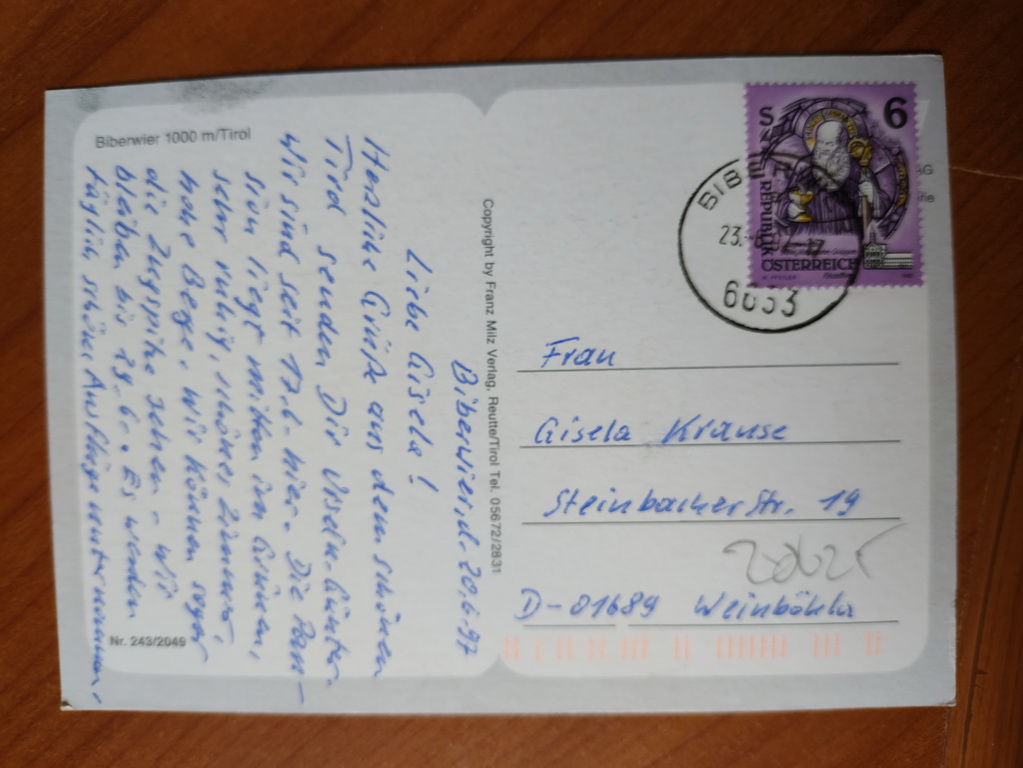 Biberwier 1000 m/Tirol
Biberwier, d. 20.6.97
Liebe Gisela!
Herzliche Grüße aus dem schönen
Tirol senden Dir Ursel u. Günter.
Wir sind seit 17.6. hier. Die Pen-
sion liegt mitten im Grünen,
sehr ruhig, schönes Zimmer,
hohe Berge. Wir können sogar
die Zugspitze sehen. Wir
bleiben bis 29.6.. Es werden
täglich schöne Ausflüge unternommen.
Nr. 243/2049
Copyright by Franz Milz Verlag, Reutte/Tirol Tel. 05672/2831
S 6
REPUBLIK
ÖSTERREICH
BIB
23.
6633
Frau
Gisela Krause
Steinbacher Str. 19
D-01689 Weinböhla